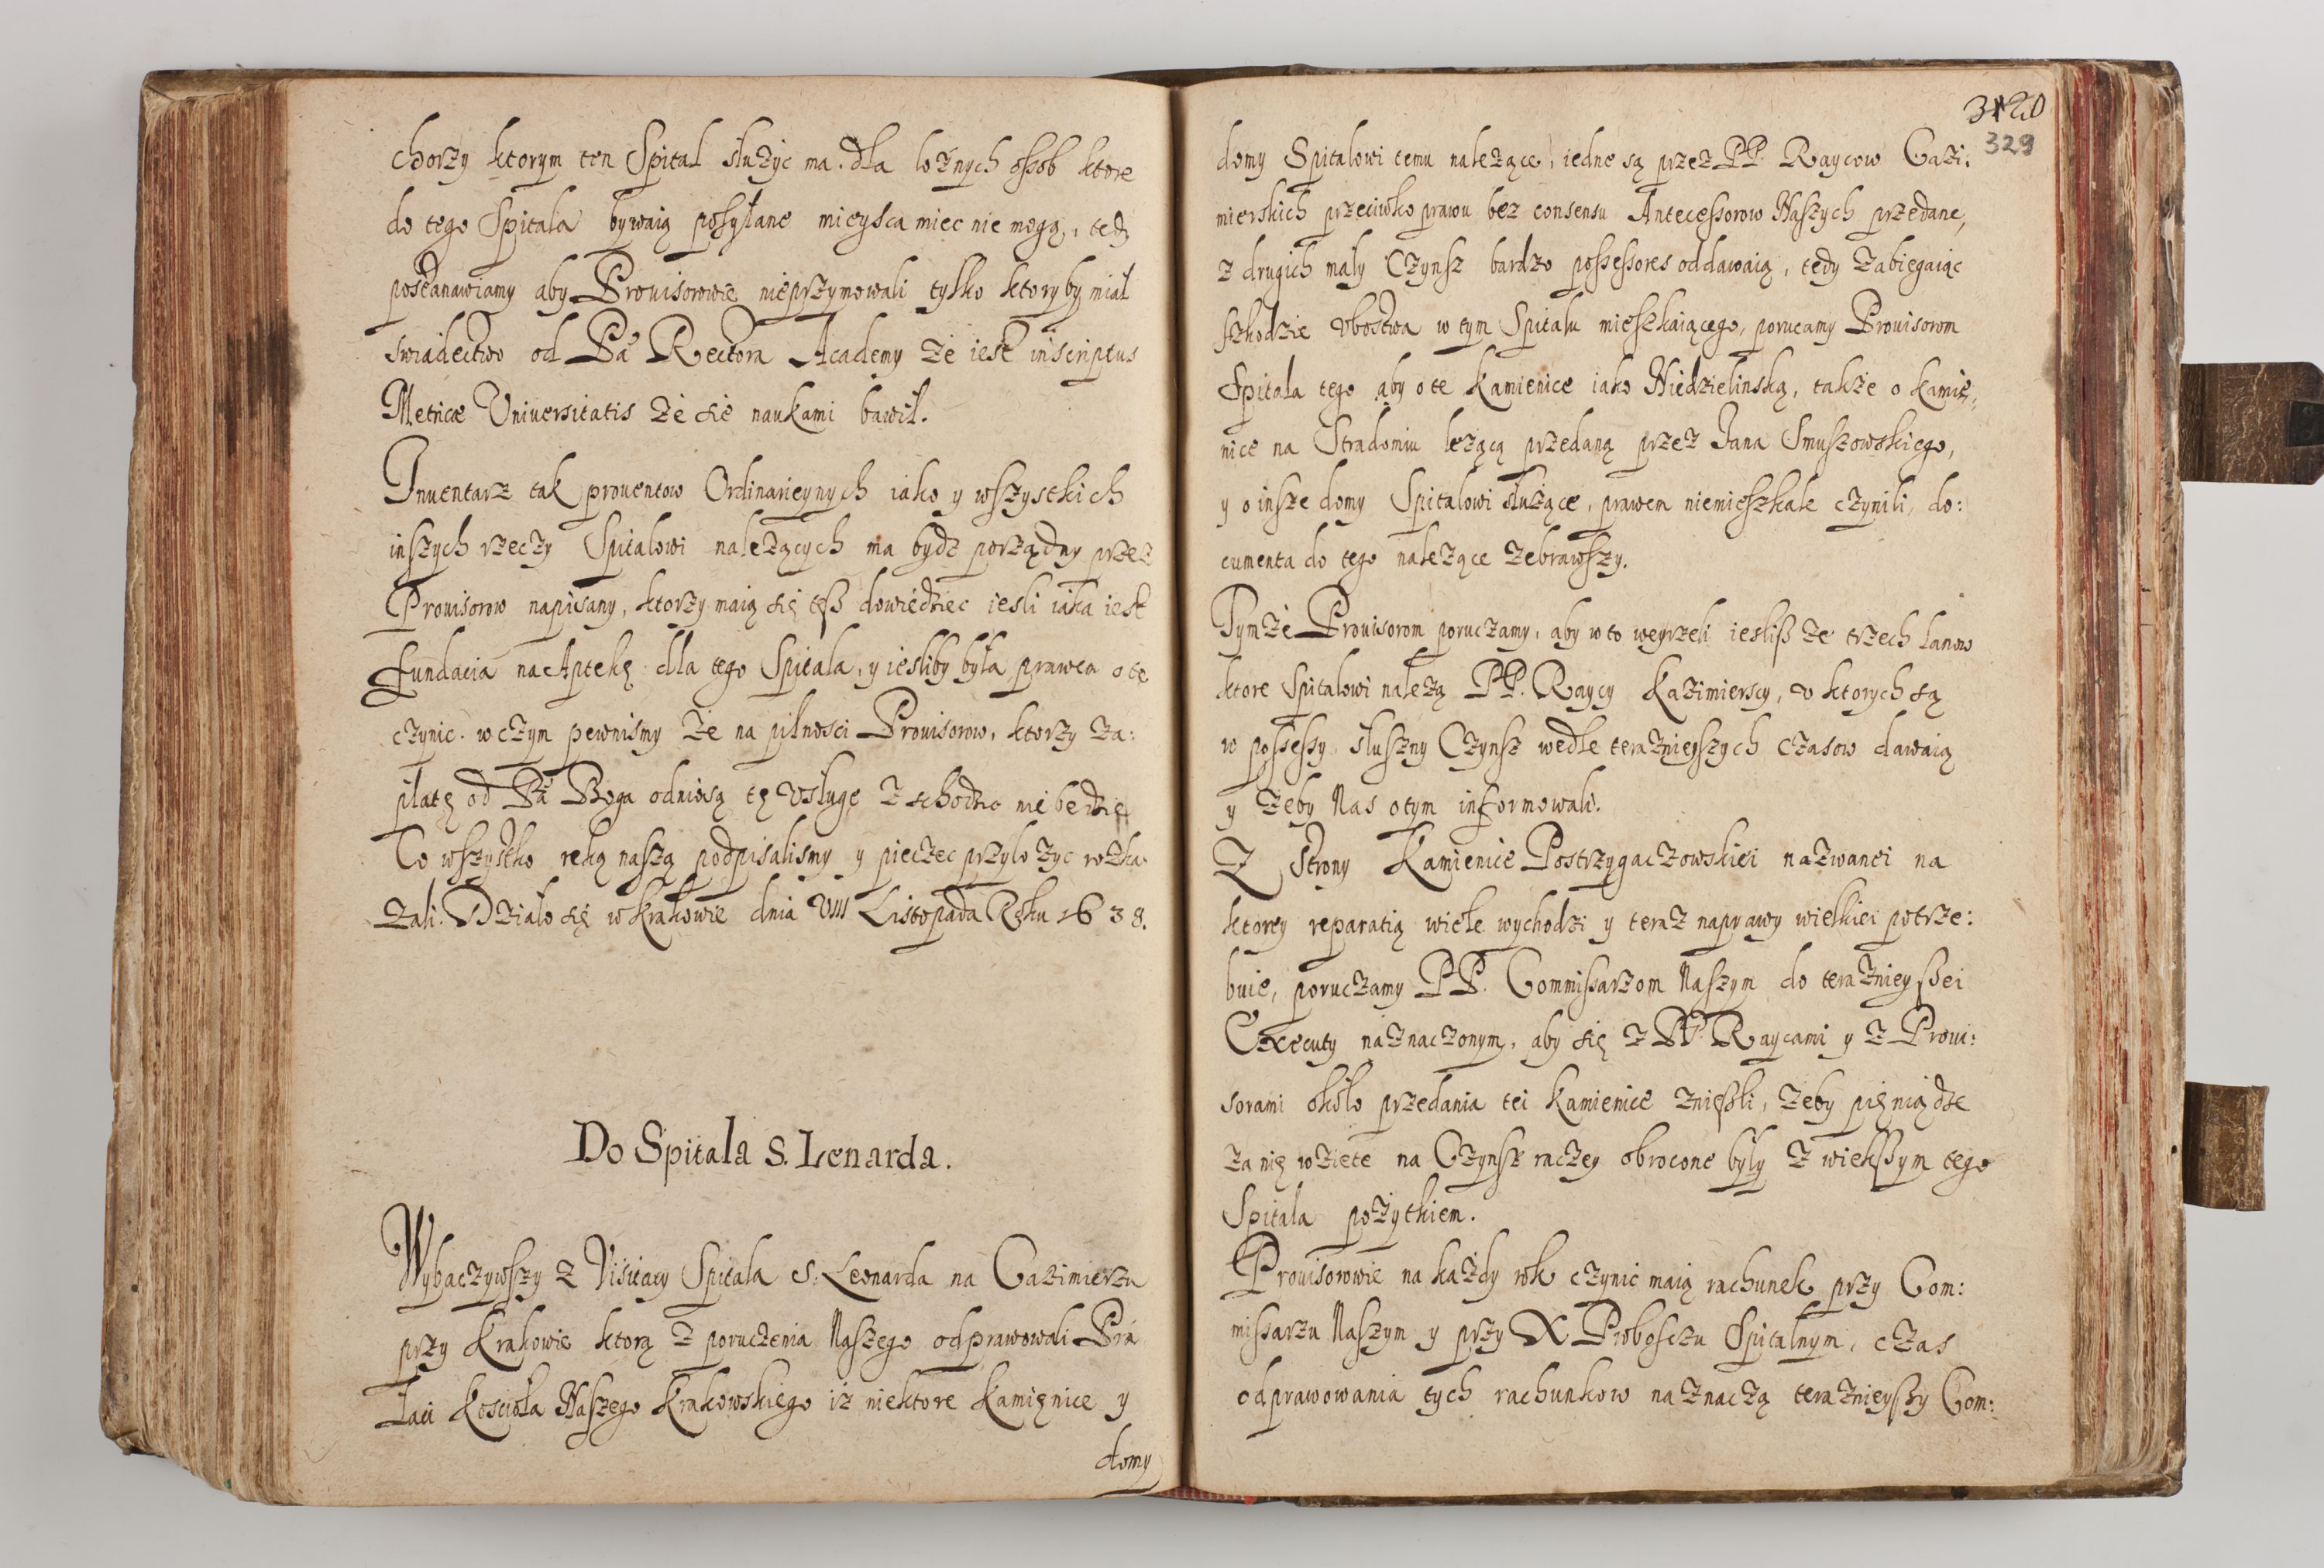 chorzy ktorym ten Spital służyc ma. dla lożnych ossob ktore
do tego Spitala bywaią posyłane mieysca miec nie mogą, tedy
postanawiamy aby Prouisorowie nieprzymowali tylko ktoryby miał
swiadectwo od Pa Rectora Academy że iest inscriptus
Metricæ Vniuersitatis że się naukami bawił.
Inuentarz tak prouentow Ordinarieynych iako y wszystkich
inszych rzeczy Spitalowi należących ma bydz porządny przez
Prouisorow napisany, ktorzy maią się tesz dowiedziec iesli iaka iest
fundacia na Aptekę dla tego Spitala, y iesliby była prawem o tę
czynic. w czym pewnismy że na pilnosci Prouisorow, ktorzy za:
płatę od Pa Boga odniosą tę vsługę z schodzic nie będzie
To wszystko ręką naszą podpisalismy y pieczec przyłożyc rozka:
zali. Działo się w Krakowie dnia VIII Listopada Roku 1638.
Do Spitala S. Lenarda.
Wybaczywszy z Visitaty Spitala S. Leonarda na Cazimierzu
przy Krakowie ktorą z poruczenia Naszego odprawowali Præ
łaci Koscioła Naszego Krakowskiego iż niektore Kamięnice y
domy
329
domy Spitalowi temu należące, iedne są przez PP. Raycow Cazi:
mierskich przeciwko prawu bez consensu Antecessorow Naszych przedane,
z drugich mały Czynsz bardzo possessores oddawaią, tedy zabiegaiąc
szkodzie vbostwa w tym Spitalu mieszkaiącego, porucamy Prouisorom
Spitala tego aby o te Kamienice iako Niedzielinską, także o Kamię-
nice na Stradomiu leżącą przedaną przez Jana Smuszowskiego,
y o insze domy Spitalowi służące, prawem niemieszkale czynili, do:
cumenta do tego należące zebrawszy.
Tymże Prouisorom poruczamy, aby w to weyrzeli iesliß ze trzech łanow
ktore Spitalowi należą PP. Raycy Kazimierscy, v ktorych są
w possessy słuszny Czynsz wedle teraznieyszych czasow dawaią
y żeby Nas o tym informowali.
Z strony Kamienice Postrzygaczowskiei nazwanei na
ktorey reparatią wiele wychodzi y teraz naprawy wielkiei potrze:
buie, poruczamy PP. Commissarzom Naszym do teraznieyszei
Executy naznaczonym, aby się z PP. Raycami y z Proui:
sorami około przedania tei Kamienice znießli, żeby pięniądze
za nię wzięte na Czynsz raczey obrocone były z większym tego
Spitala pożytkiem.
Prouisorowie na każdy rok czynic maią rachunek przy Com:
missarzu Naszym y przy X Proboszczu Spitalnym, czas
odprawowania tych rachunkow naznaczą teraznieyszy Com: